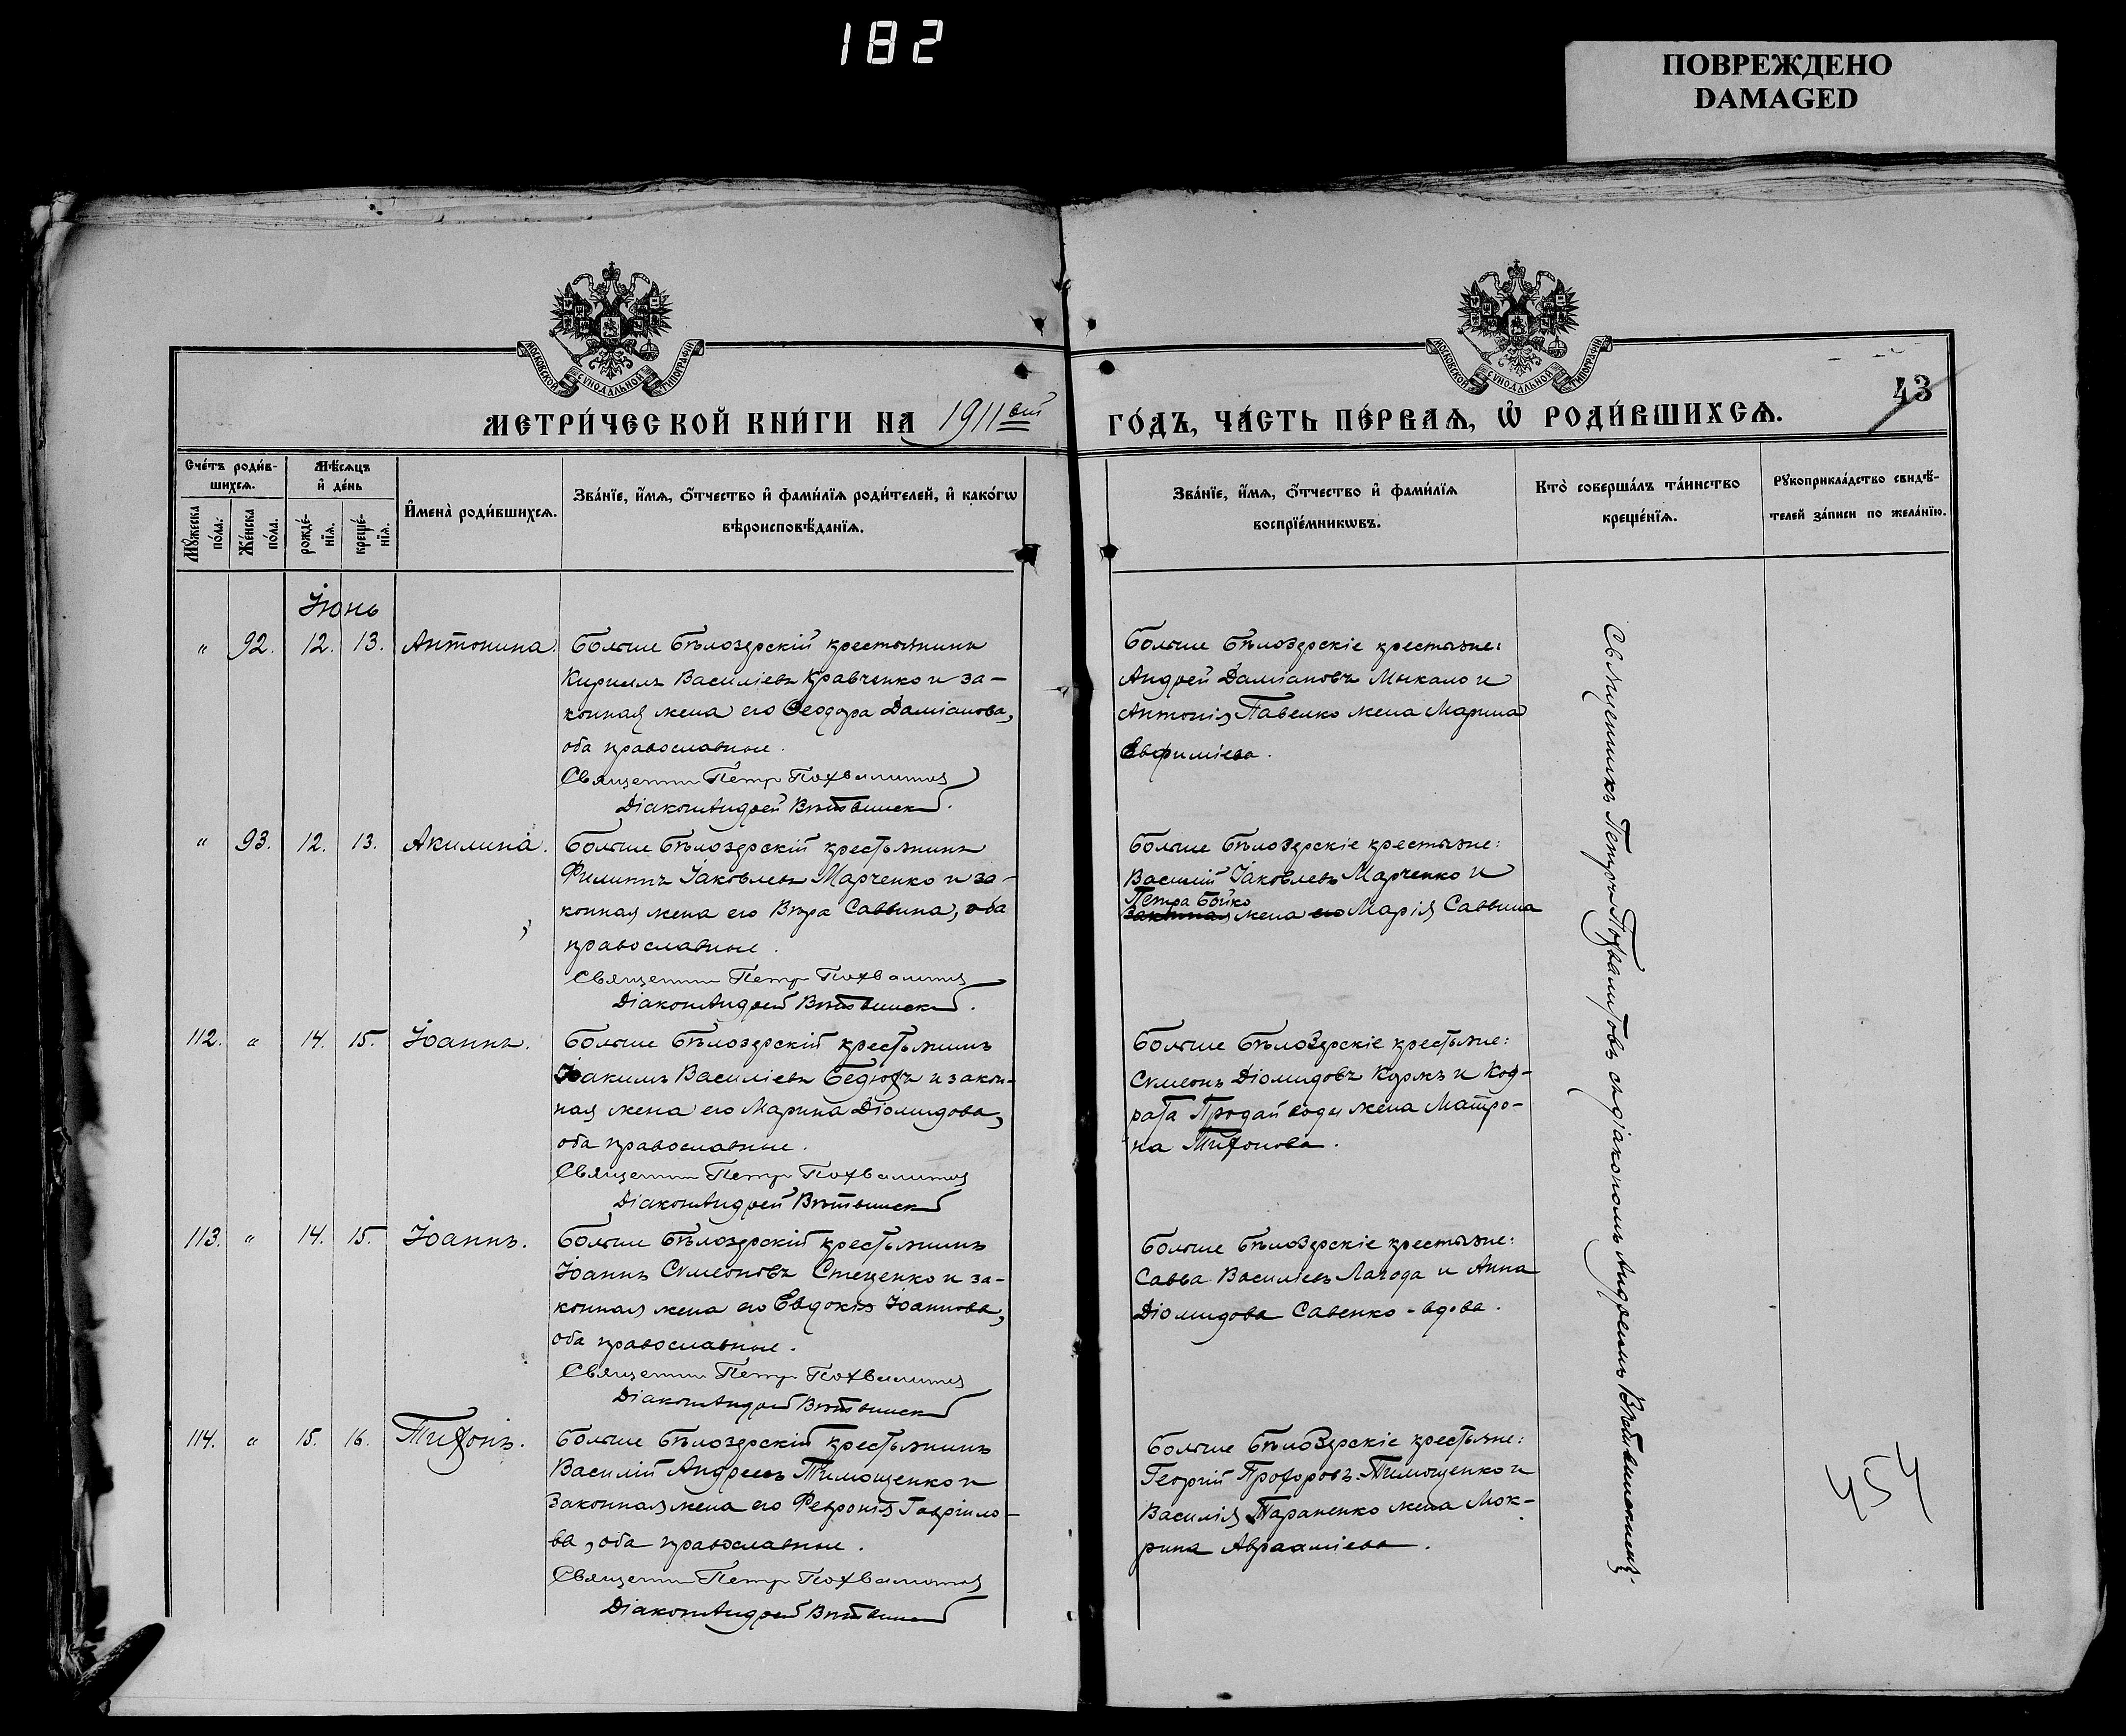 182
ПОВРЕЖДЕНО
DAMAGED
МОСКОВСКОЙ СѴНОДАЛЬНОЙ ТИПОГРАФІИ
МОСКОВСКОЙ СѴНОДАЛЬНОЙ ТИПОГРАФІИ
43
МЕТРИ́ЧЕСКОЙ КНИ́ГИ НА 1911 вый
ГО́ДЪ, ЧА́СТЬ ПЕ́РВАѦ, Ѡ҆ РОДИ́ВШИХСѦ.
Сче́тъ роди́в-
шихсѧ.
Мѣ́сѧцъ
и҆ де́нь
И҆мена̀ роди́вшихсѧ.
Зва́нїе, и҆́мѧ, ѻ҆́тчество и҆ фами́лїѧ роди́телей, и҆ како́гѡ
вѣроисповѣ́данїѧ.
Мꙋ́жеска
по́ла.
Же́нска
по́ла.
рожде́-
нїѧ.
креще́-
нїѧ.
Зва́нїе, и҆́мѧ, ѻ҆́тчество и҆ фами́лїѧ
воспрїе́мникѡвъ.
Кто̀ соверша́лъ та́инство
креще́нїѧ.
Рꙋкоприкла́дство свидѣ́-
телей за́писи по жела́нїю.
Іюнь
" 92. 12. 13. Антонина. Больше Бѣлозерскій крестьянинъ
Кириллъ Василіевъ Кравченко и за-
конная жена его Ѳеодора Даміанова,
оба православные.
Священник Петр Похвалитов
Діакон Андрей Вѣтвинскій.
Больше Бѣлозерскіе крестьяне:
Андрей Даміановъ Мыкало и
Антонія Павелко жена Марина
Евфиміева.
" 93. 12. 13. Акилина. Больше Бѣлозерскій крестьянинъ
Филиппъ Іаковлевъ Марченко и за-
конная жена его Вѣра Саввина, оба
православные.
Священник Петр Похвалитов
Діакон Андрей Вѣтвинскій.
Больше Бѣлозерскіе крестьяне:
Василій Іаковлевъ Марченко и
Петра Бойко
законная жена его Марія Саввина
112. " 14. 15. Іоаннъ. Больше Бѣлозерскій крестьянинъ
Іоакимъ Василіевъ Бедюхъ и закон-
ная жена его Марина Діомидова,
оба православные.
Священник Петр Похвалитов
Діакон Андрей Вѣтвинскій
Больше Бѣлозерскіе крестьяне:
Сѵмеонъ Діомидовъ Коржъ и Код-
рата Продайводы жена Матро-
на Тихонова.
113. " 14. 15. Іоаннъ. Больше Бѣлозерскій крестьянинъ
Іоаннъ Сѵмеоновъ Стеценко и за-
конная жена его Евдокія Іоаннова,
оба православные.
Священник Петр Похвалитов
Діакон Андрей Вѣтвинскій
Больше Бѣлозерскіе крестьяне:
Савва Василіевъ Лагода и Анна
Діомидова Савенко - вдова.
114. " 15. 16. Тихонъ. Больше Бѣлозерскій крестьянинъ
Василій Андреевъ Тимощенко и
законная жена его Февронія Гавріило-
ва, оба православные.
Священник Петр Похвалитов
Діакон Андрей Вѣтвинскій
Больше Бѣлозерскіе крестьяне:
Георгій Прохоровъ Тимощенко и
Василія Тараненко жена Мок-
рина Авраамiева.
Священникъ Петръ Похвалитовъ съ діакономъ Андреемъ Вѣтвинскимъ.
454